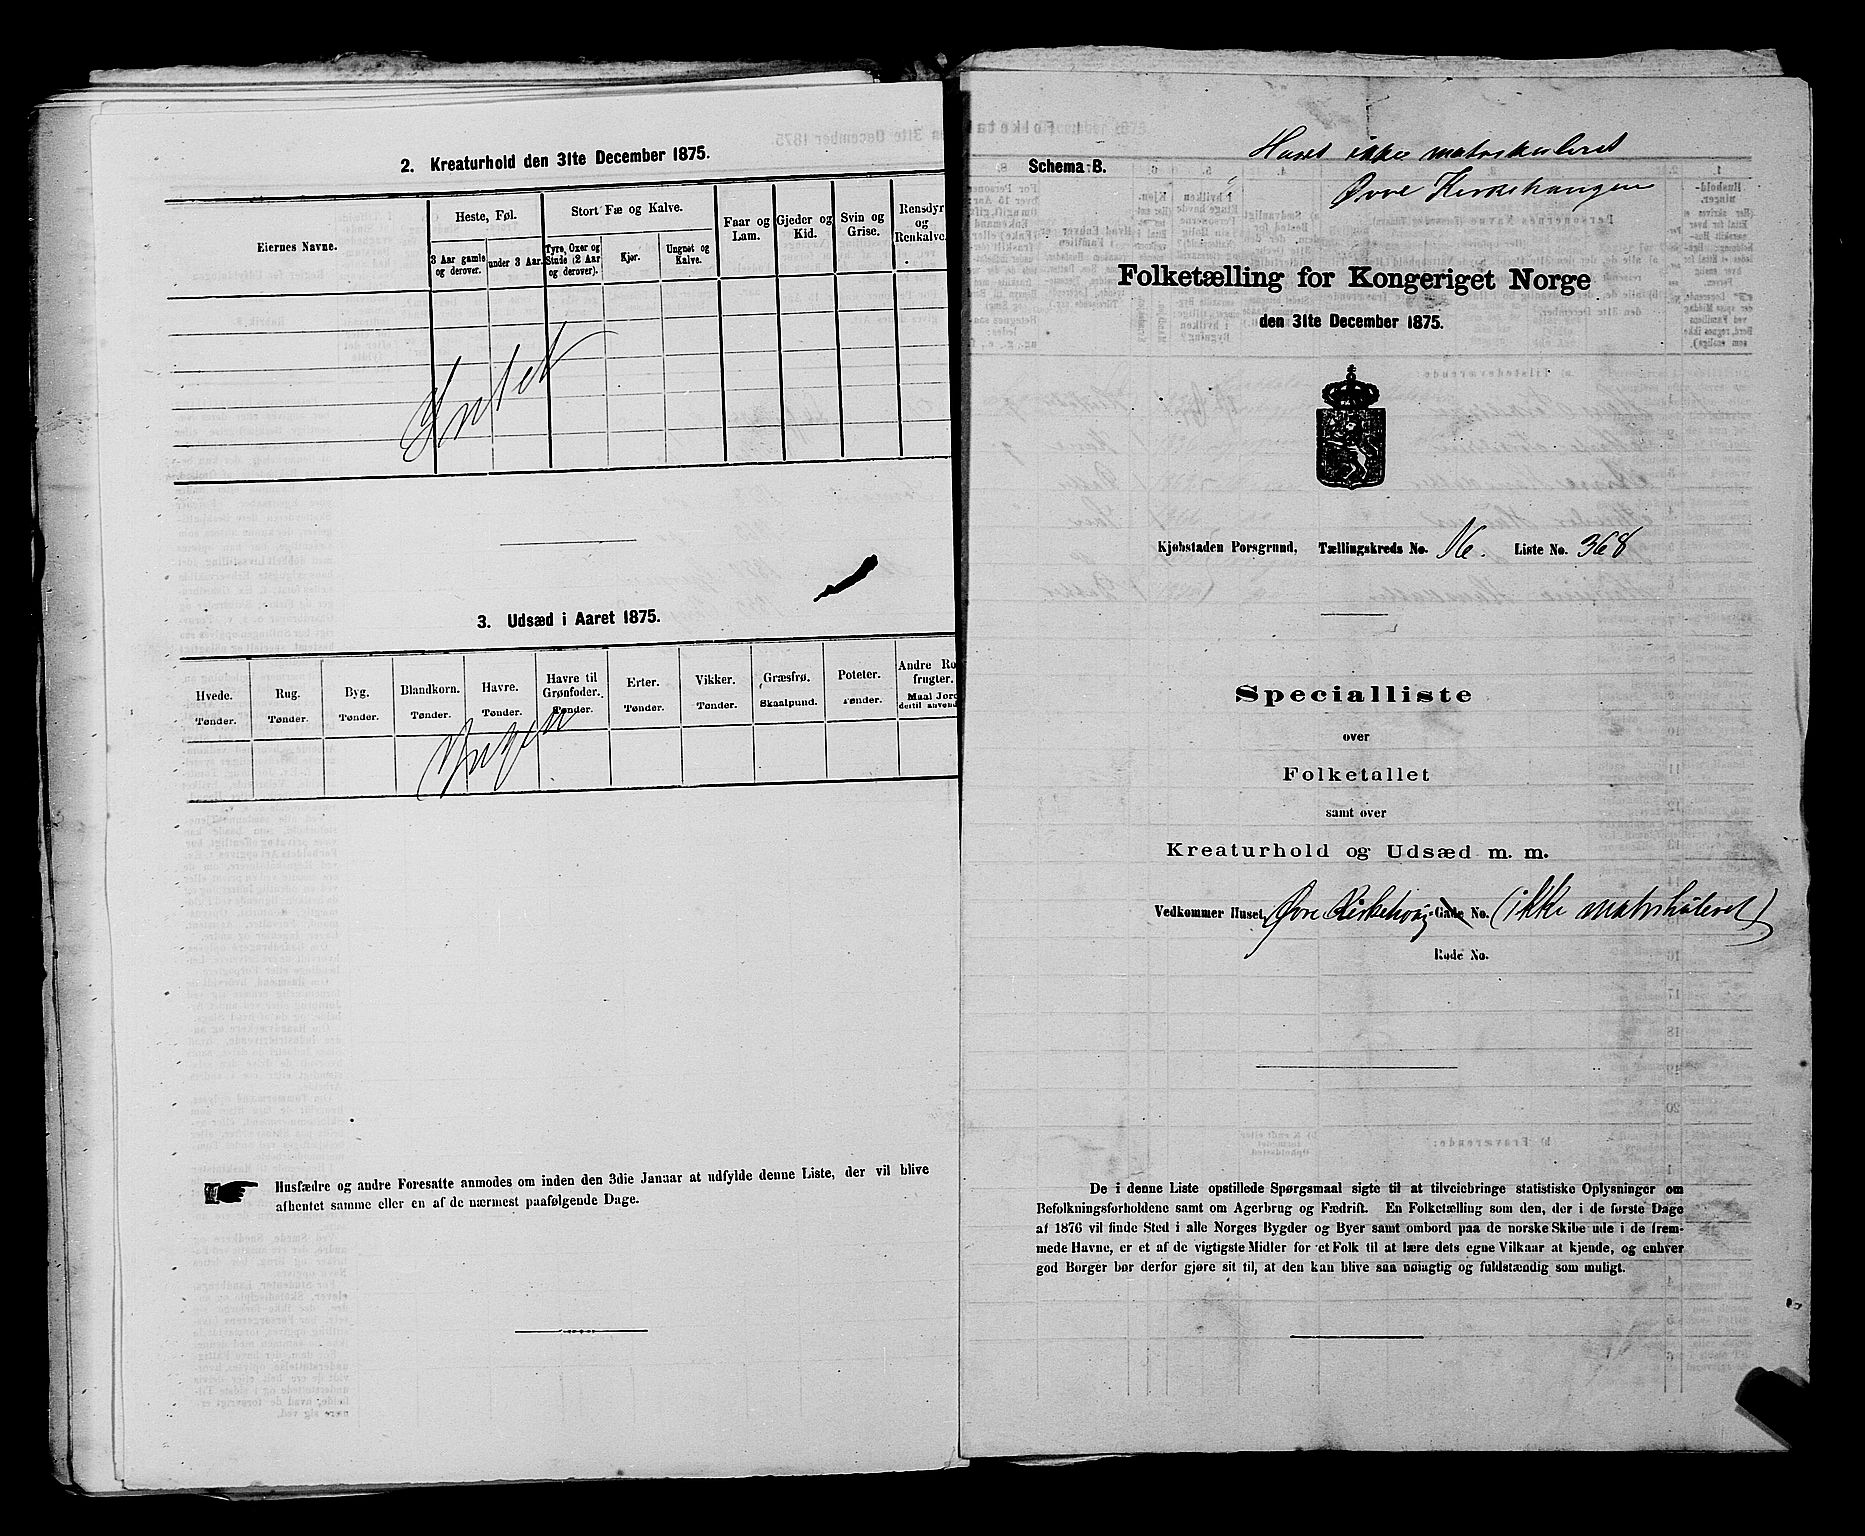 2. Kreaturhold den 31te December 1875.
Eiernes Navne.
Heste, Føl.
3 Aar gamle og derover.
under 3 Aar.
Stort Fæ og Kalve.
Tyre, Oxer og Stude (2 Aar og derover).
Kjør.
Ungnet og Kalve.
Faar og Lam.
Gjeder og Kid.
Svin og Grise.
Rensdyr og Renkalve.
Intet
3. Udsæd i Aaret 1875.
Hvede. Tønder.
Rug. Tønder.
Byg. Tønder.
Blandkorn. Tønder.
Havre. Tønder.
Havre til Grønfoder. Tønder.
Erter. Tønder.
Vikker. Tønder.
Græsfrø. Skaalpund.
Poteter. Tønder.
Andre Ro frugter. Maal Jord dertil anvend
Ingen
Husfædre og andre Foresatte anmodes om inden den 3die Januar at udfylde denne Liste, der vil blive
afhentet samme eller en af de nærmest paafølgende Dage.
Huset ikke matrikuleret
Schema B.
Øvre Kirkehaugen
Folketælling for Kongeriget Norge
den 31te December 1875.
Kjøbstaden Porsgrund, Tællingskreds No. 16. Liste No. 368
Specialliste
over
Folketallet
samt over
Kreaturhold og Udsæd m. m.
Vedkommer Huset, Øvre Kirkehoug- Gade No. (ikke matrikuleret)
Rode No.
De i denne Liste opstillede Spørgsmaal sigte til at tilveiebringe statistiske Oplysninger om
Befolkningsforholdene samt om Agerbrug og Fædrift. En Folketælling som den, der i de første Dage
af 1876 vil finde Sted i alle Norges Bygder og Byer samt ombord paa de norske Skibe ude i de frem-
mede Havne, er et af de vigtigste Midler for et Folk til at lære dets egne Vilkaar at kjende, og enhver
god Borger bør derfor gjøre sit til, at den kan blive saa nøiagtig og fuldstændig som muligt.